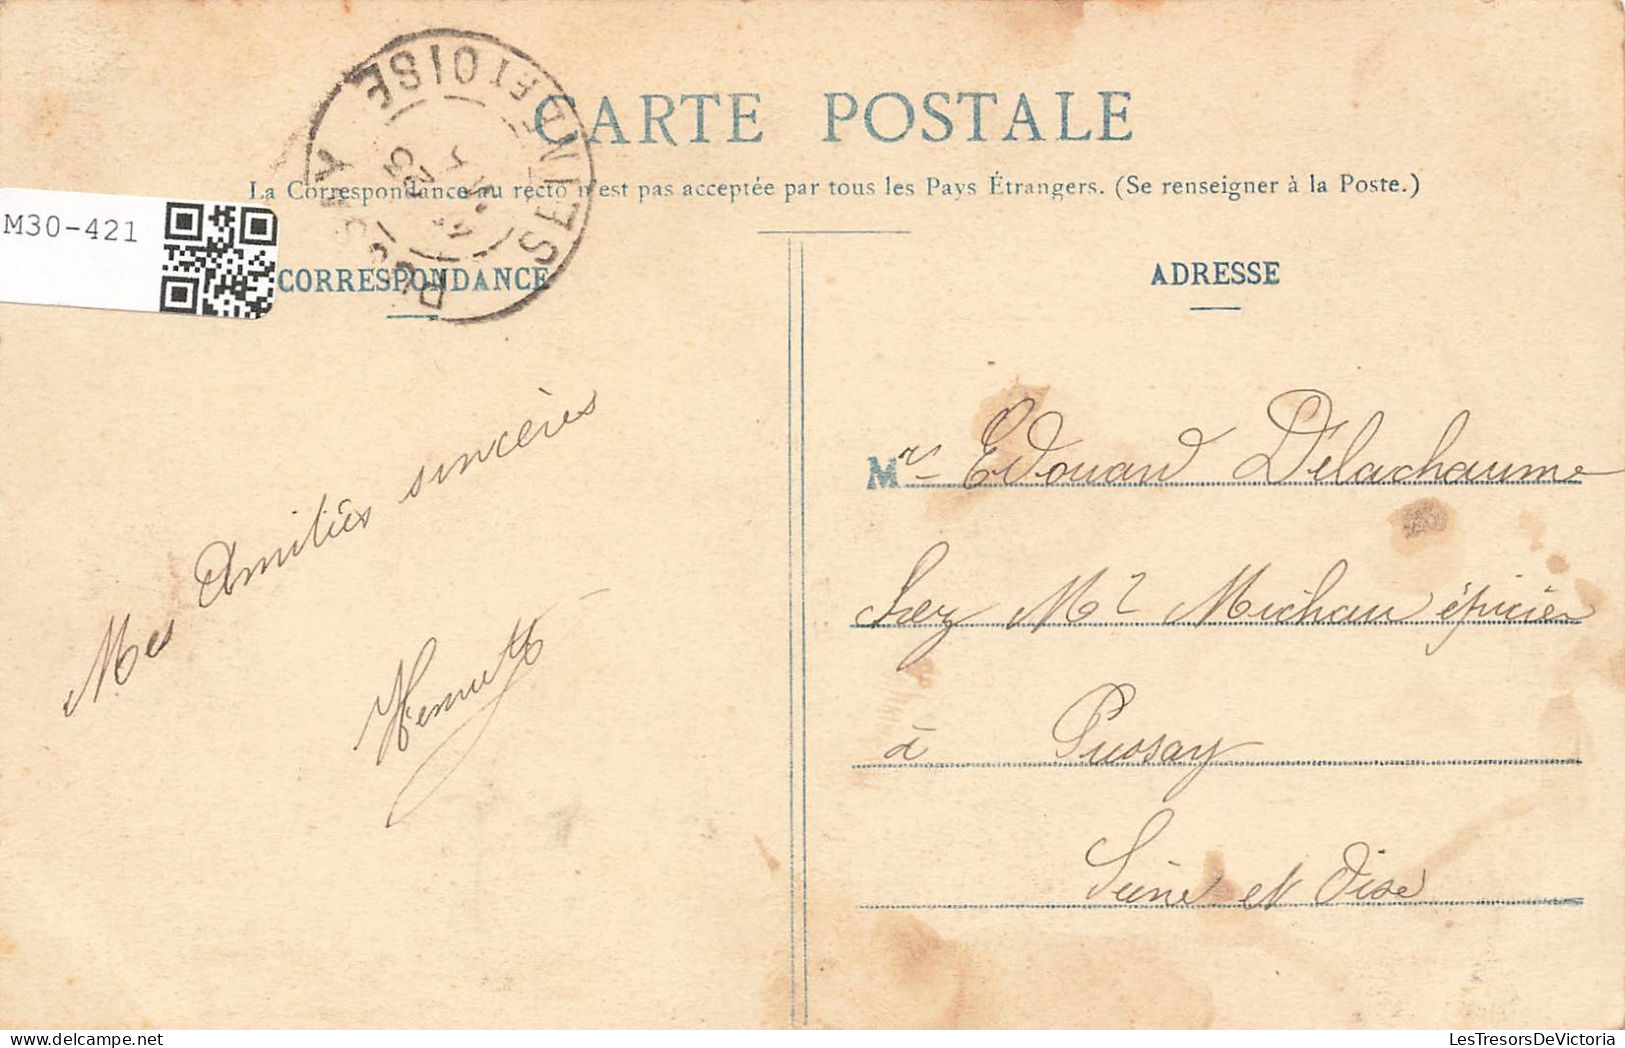 CARTE POSTALE
La Correspondance au recto n'est pas acceptée par tous les Pays Étrangers. (Se renseigner à la Poste.)
M30-421
CORRESPONDANCE
ADRESSE
PUSSAY
SEINE-ET-OISE
Mes Amitiés sincères
Mr Edouard Delachaume
chez Mr Michau épicier
à Pussay
Seine et Oise
LesTresorsDeVictoria